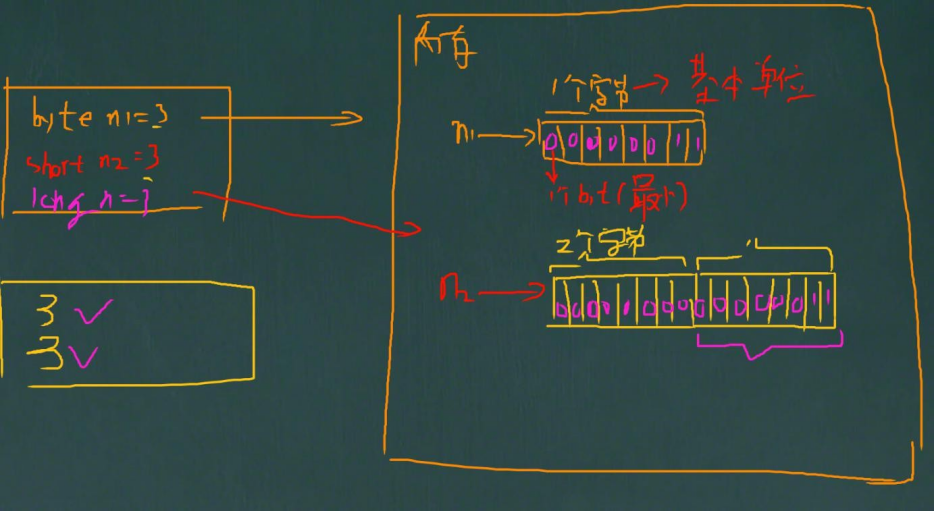 byte n1=3
short n2=3
long n=3
3
3
内存
1个字节 → 基本单位
n1 → 0 0 0 0 0 0 1 1
1个bit(最小)
2个字节
n2 → 0 0 0 0 0 0 0 0 0 0 0 0 0 0 1 1